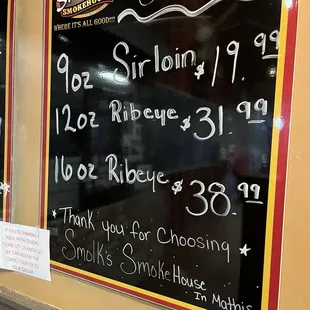 SMOKEHOUSE
WHERE IT'S ALL GOOD!!!
9oz Sirloin $19.99
12oz Ribeye $31.99
16oz Ribeye $38.99
Thank you for Choosing
Smolk's SmokeHouse
In Mathis